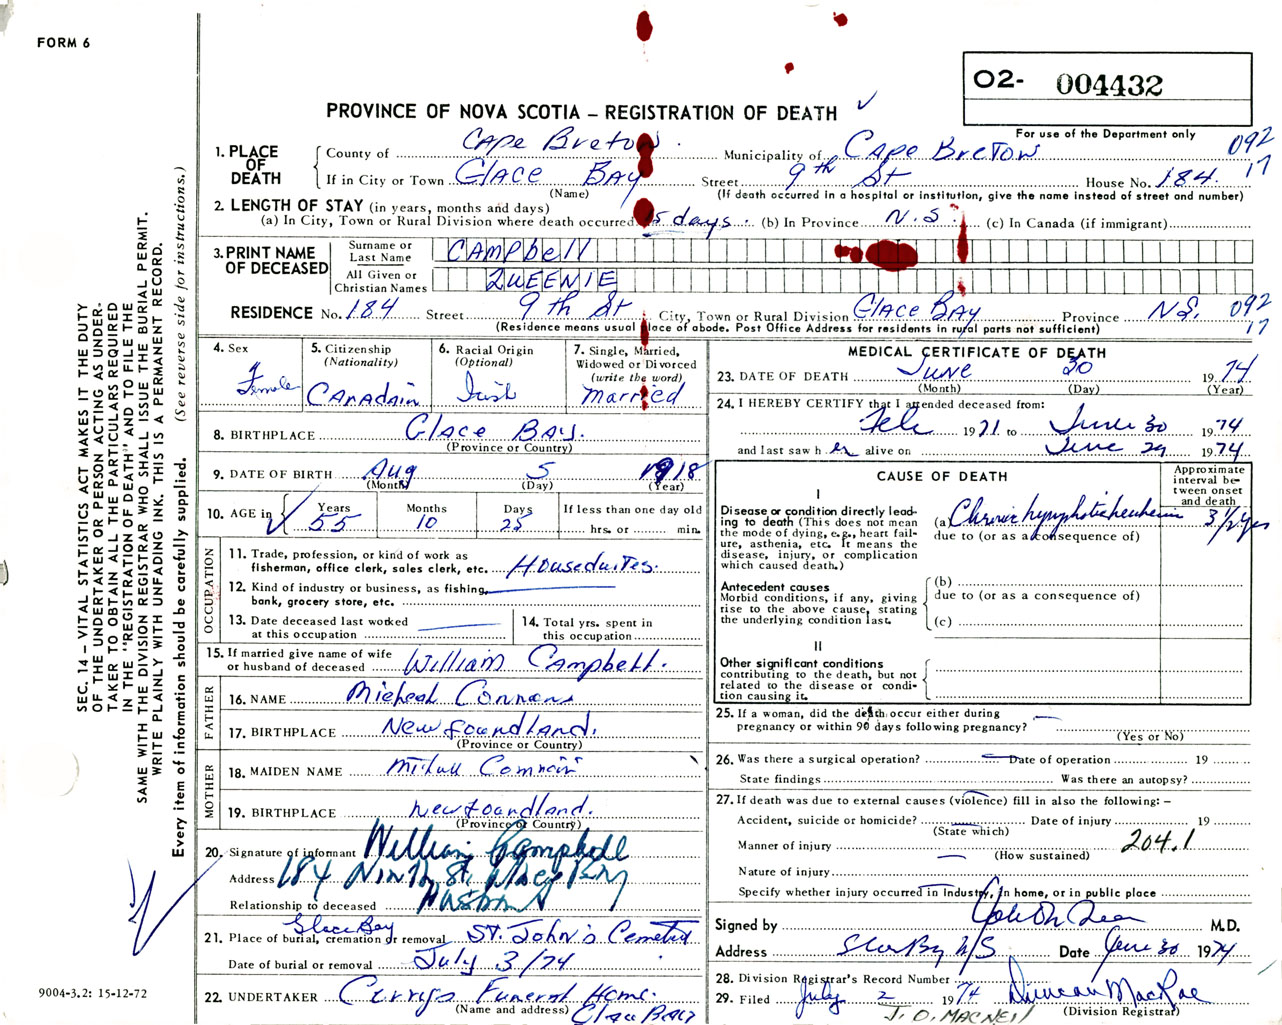 FORM 6
O2- 004432
PROVINCE OF NOVA SCOTIA – REGISTRATION OF DEATH ✓
For use of the Department only
092
17
1. PLACE OF DEATH
County of Cape Breton Municipality of Cape Breton
If in City or Town Glace Bay Street 9th St House No. 184
(Name) (If death occurred in a hospital or institution, give the name instead of street and number)
2. LENGTH OF STAY (in years, months and days)
(a) In City, Town or Rural Division where death occurred days (b) In Province N.S. (c) In Canada (if immigrant)
3. PRINT NAME OF DECEASED
Surname or Last Name CAMPbell
All Given or Christian Names QUEENIE
RESIDENCE No. 184 Street 9th St City, Town or Rural Division Glace Bay Province N.S. 092
17
(Residence means usual place of abode. Post Office Address for residents in rural parts not sufficient)
4. Sex
Female
5. Citizenship
(Nationality)
Canadain
6. Racial Origin
(Optional)
Irish
7. Single, Married,
Widowed or Divorced
(write the word)
Married
8. BIRTHPLACE Glace Bay.
(Province or Country)
9. DATE OF BIRTH Aug 5 1918
(Month) (Day) (Year)
10. AGE in
Years 55
Months 10
Days 25
If less than one day old
hrs. or min.
OCCUPATION
11. Trade, profession, or kind of work as
fisherman, office clerk, sales clerk, etc. Houseduites.
12. Kind of industry or business, as fishing,
bank, grocery store, etc.
13. Date deceased last worked
at this occupation
14. Total yrs. spent in
this occupation
15. If married give name of wife
or husband of deceased William Campbell.
FATHER
16. NAME Micheal Connons
17. BIRTHPLACE Newfoundland.
(Province or Country)
MOTHER
18. MAIDEN NAME
19. BIRTHPLACE Newfoundland.
(Province or Country)
20. Signature of informant William Campbell
Address 184 Ninth St. Glace Bay
Relationship to deceased Husband
Glace Bay
21. Place of burial, cremation or removal St. John's
Date of burial or removal July 3/74
22. UNDERTAKER Funeral Home.
(Name and address) Glace Bay
MEDICAL CERTIFICATE OF DEATH
23. DATE OF DEATH June 30 1974
(Month) (Day) (Year)
24. I HEREBY CERTIFY that I attended deceased from:
Feb 1971 to June 30 1974
and last saw her alive on June 29 1974
CAUSE OF DEATH
Approximate
interval be-
tween onset
and death
I
Disease or condition directly lead-
ing to death (This does not mean
the mode of dying, e.g., heart fail-
ure, asthenia, etc. It means the
disease, injury, or complication
which caused death.)
(a) Chronic 3 1/2 yrs
due to (or as a consequence of)
Antecedent causes
Morbid conditions, if any, giving
rise to the above cause, stating
the underlying condition last.
(b)
due to (or as a consequence of)
(c)
II
Other significant conditions
contributing to the death, but not
related to the disease or condi-
tion causing it.
25. If a woman, did the death occur either during
pregnancy or within 90 days following pregnancy?
(Yes or No)
26. Was there a surgical operation? Date of operation 19
State findings Was there an autopsy?
27. If death was due to external causes (violence) fill in also the following: –
Accident, suicide or homicide? Date of injury 19
(State which)
Manner of injury 204.1
(How sustained)
Nature of injury
Specify whether injury occurred in Industry, in home, or in public place
Signed by M.D.
Address N/S Date June 30 1974
28. Division Registrar's Record Number
29. Filed July 2 1974 Duncan MacRae
J. O. MACNEIL (Division Registrar)
SEC. 14 – VITAL STATISTICS ACT MAKES IT THE DUTY
OF THE UNDERTAKER OR PERSON ACTING AS UNDER-
TAKER TO OBTAIN ALL THE PARTICULARS REQUIRED
IN THE "REGISTRATION OF DEATH" AND TO FILE THE
SAME WITH THE DIVISION REGISTRAR WHO SHALL ISSUE THE BURIAL PERMIT.
WRITE PLAINLY WITH UNFADING INK. THIS IS A PERMANENT RECORD.
Every item of information should be carefully supplied. (See reverse side for instructions.)
9004-3.2: 15-12-72